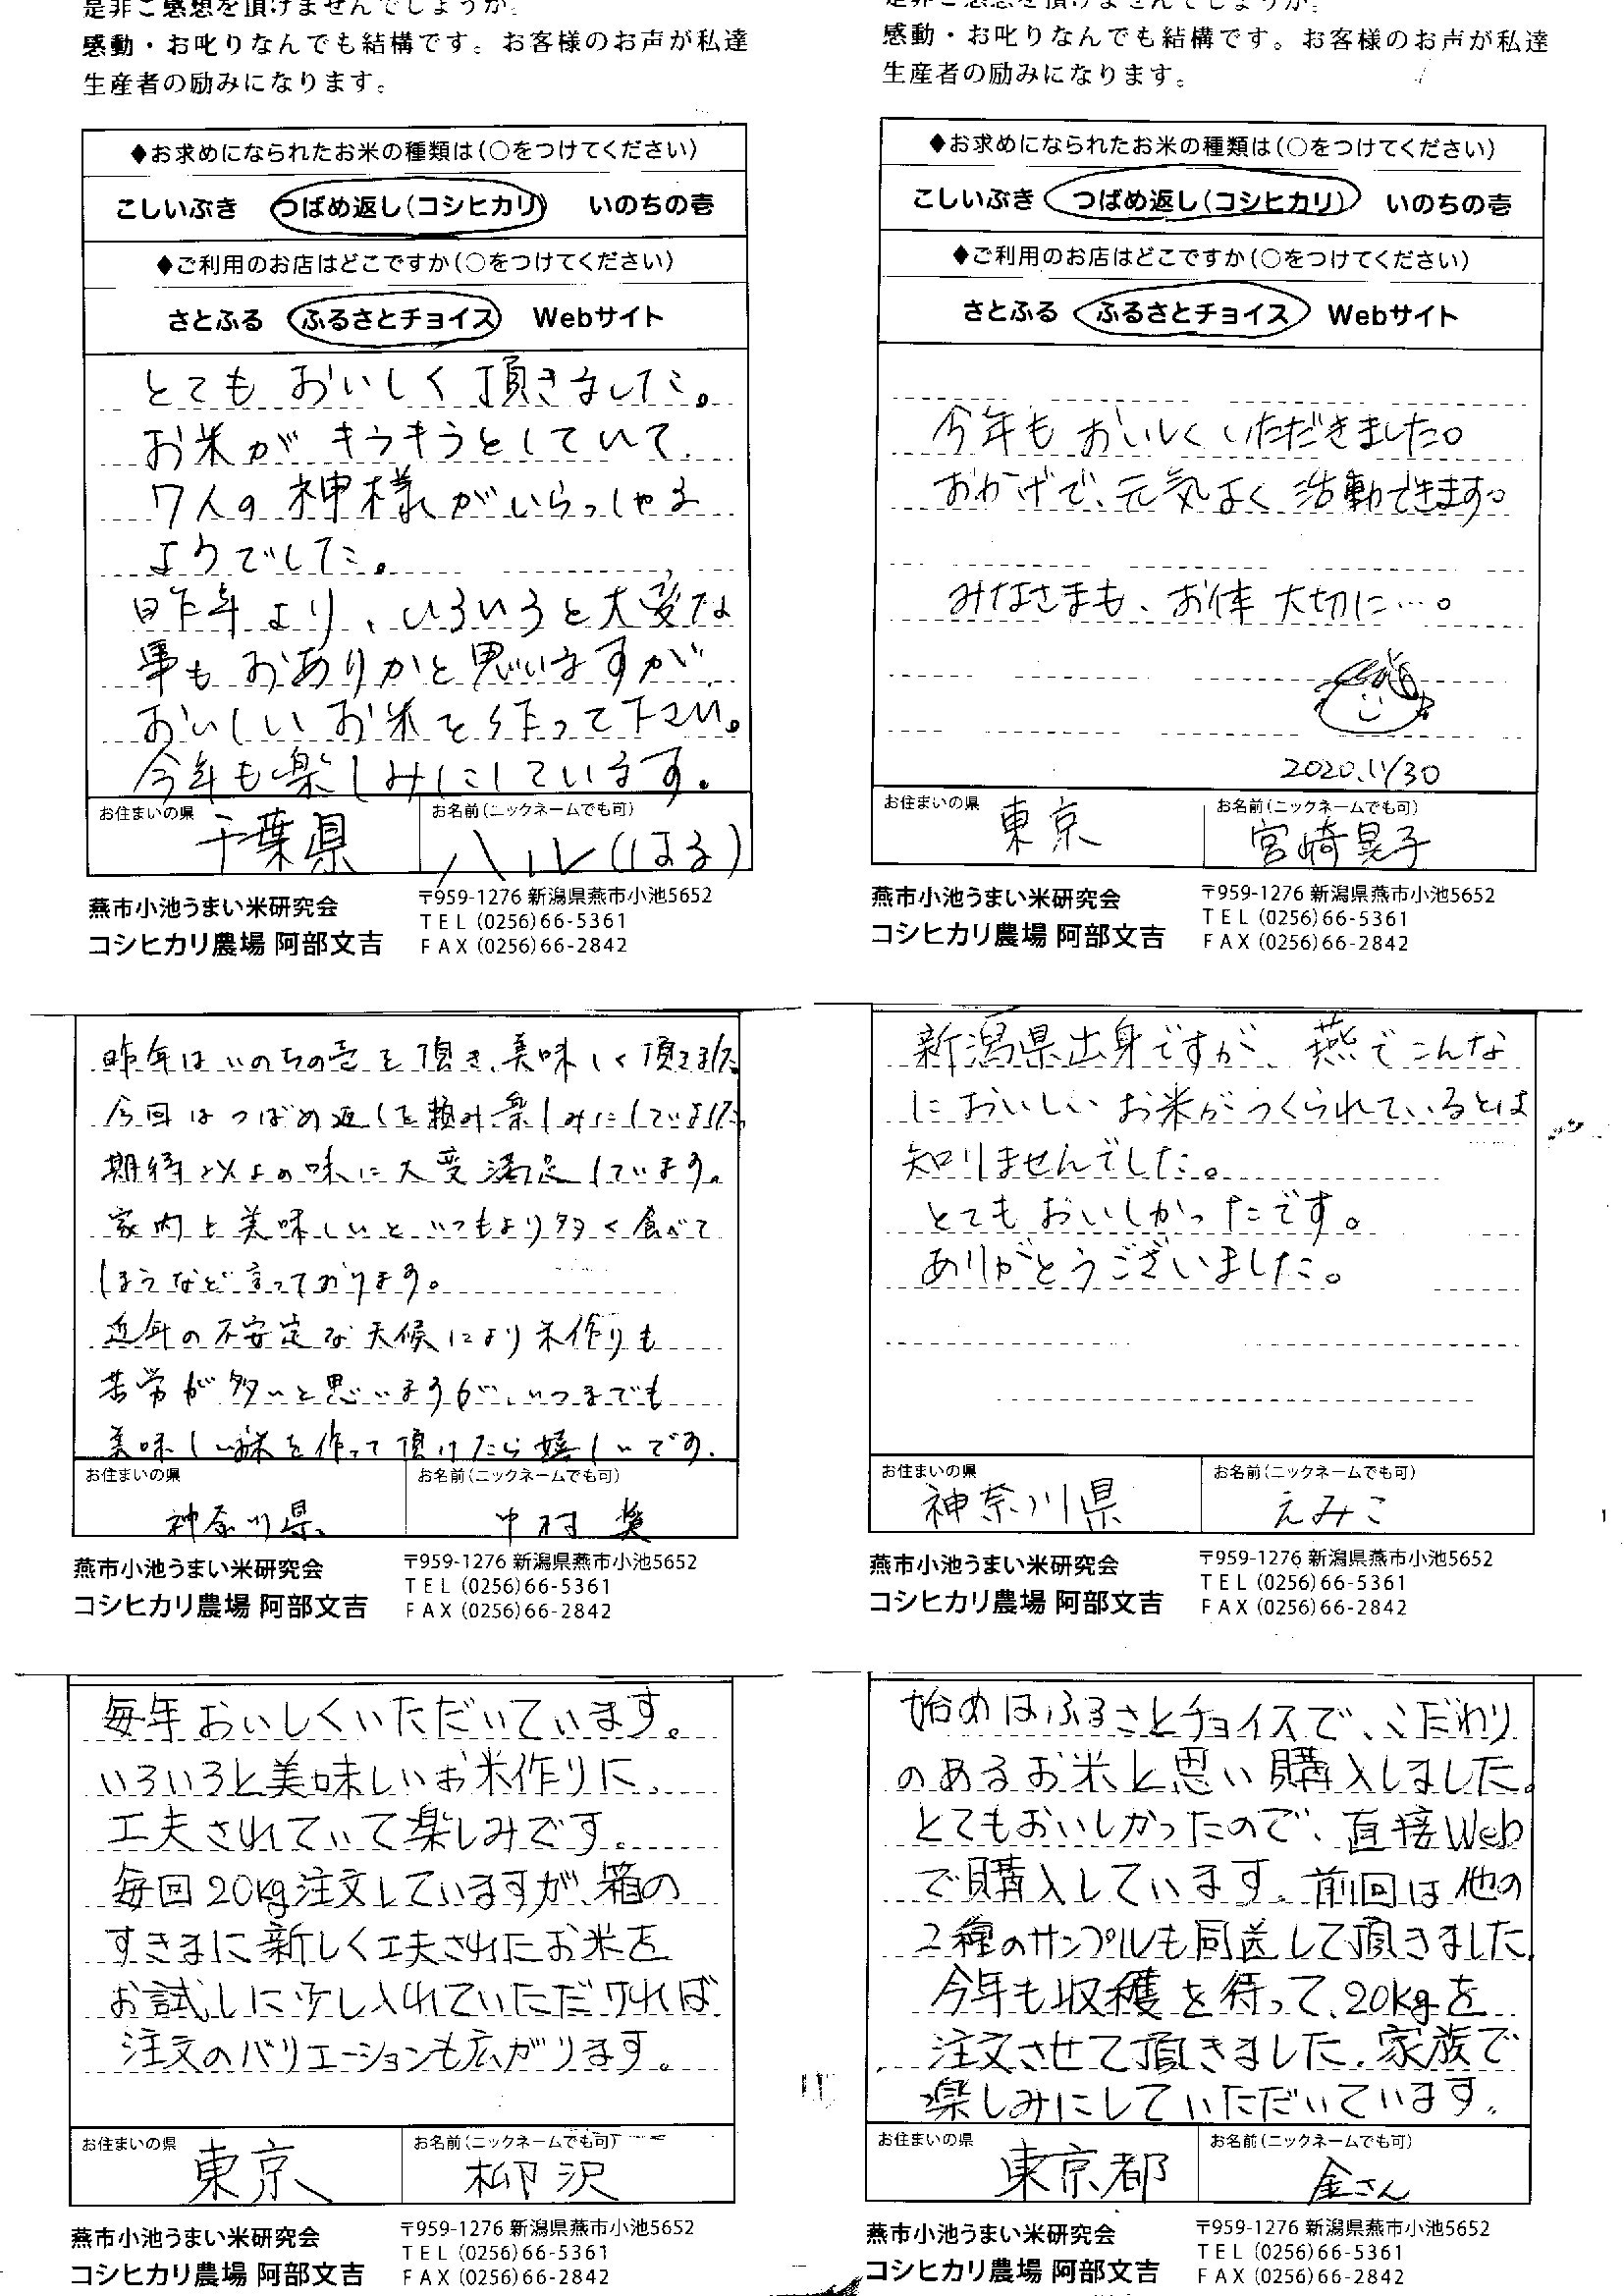 是非ご感想を頂けませんでしょうか。
感動・お叱りなんでも結構です。お客様のお声が私達
生産者の励みになります。
◆お求めになられたお米の種類は(○をつけてください)
こしいぶき つばめ返し(コシヒカリ) いのちの壱
◆ご利用のお店はどこですか(○をつけてください)
さとふる ふるさとチョイス Webサイト
とてもおいしく頂きました。
お米がキラキラとしていて
7人の神様がいらっしゃる
ようでした。
昨年より、いろいろと大変な
事もおありかと思いますが、
おいしいお米を作って下さい。
今年も楽しみにしています。
お住まいの県 千葉県
お名前(ニックネームでも可) ハル(はる)
燕市小池うまい米研究会
コシヒカリ農場 阿部文吉
〒959-1276 新潟県燕市小池5652
TEL (0256)66-5361
FAX (0256)66-2842
是非ご感想を頂けませんでしょうか。
感動・お叱りなんでも結構です。お客様のお声が私達
生産者の励みになります。
◆お求めになられたお米の種類は(○をつけてください)
こしいぶき つばめ返し(コシヒカリ) いのちの壱
◆ご利用のお店はどこですか(○をつけてください)
さとふる ふるさとチョイス Webサイト
今年もおいしくいただきました。
おかげで、元気よく活動できます。
みなさまも、お体大切に…。
2020.11/30
お住まいの県 東京
お名前(ニックネームでも可) 宮崎晃子
燕市小池うまい米研究会
コシヒカリ農場 阿部文吉
〒959-1276 新潟県燕市小池5652
TEL (0256)66-5361
FAX (0256)66-2842
昨年はいのちの壱を頂き、美味しく頂きました
今回はつばめ返しを頼み、楽しみにしていました
期待以上の味に大変満足しています。
家内と美味しいと、いつもより多く食べて
しまうなど言っております。
近年の不安定な天候により米作りも
苦労が多いと思いますが、いつまでも
美味しい米を作って頂けたら嬉しいです。
お住まいの県 神奈川県
お名前(ニックネームでも可) 中村
燕市小池うまい米研究会
コシヒカリ農場 阿部文吉
〒959-1276 新潟県燕市小池5652
TEL (0256)66-5361
FAX (0256)66-2842
新潟県出身ですが、燕でこんな
においしいお米がつくられているとは
知りませんでした。
とてもおいしかったです。
ありがとうございました。
お住まいの県 神奈川県
お名前(ニックネームでも可) えみこ
燕市小池うまい米研究会
コシヒカリ農場 阿部文吉
〒959-1276 新潟県燕市小池5652
TEL (0256)66-5361
FAX (0256)66-2842
毎年おいしくいただいています。
いろいろと美味しいお米作りに、
工夫されていて楽しみです。
毎回20kg注文していますが、箱の
すきまに新しく工夫されたお米を
お試しに少し入れていただければ
注文のバリエーションも広がります。
お住まいの県 東京
お名前(ニックネームでも可) 柳沢
燕市小池うまい米研究会
コシヒカリ農場 阿部文吉
〒959-1276 新潟県燕市小池5652
TEL (0256)66-5361
FAX (0256)66-2842
始めはふるさとチョイスで、こだわり
のあるお米と思い購入しました。
とてもおいしかったので、直接Web
で購入しています。前回は他の
2種のサンプルも同送して頂きました。
今年も収穫を待って、20kgを
注文させて頂きました。家族で
楽しみにしていただいています。
お住まいの県 東京都
お名前(ニックネームでも可) 金さん
燕市小池うまい米研究会
コシヒカリ農場 阿部文吉
〒959-1276 新潟県燕市小池5652
TEL (0256)66-5361
FAX (0256)66-2842